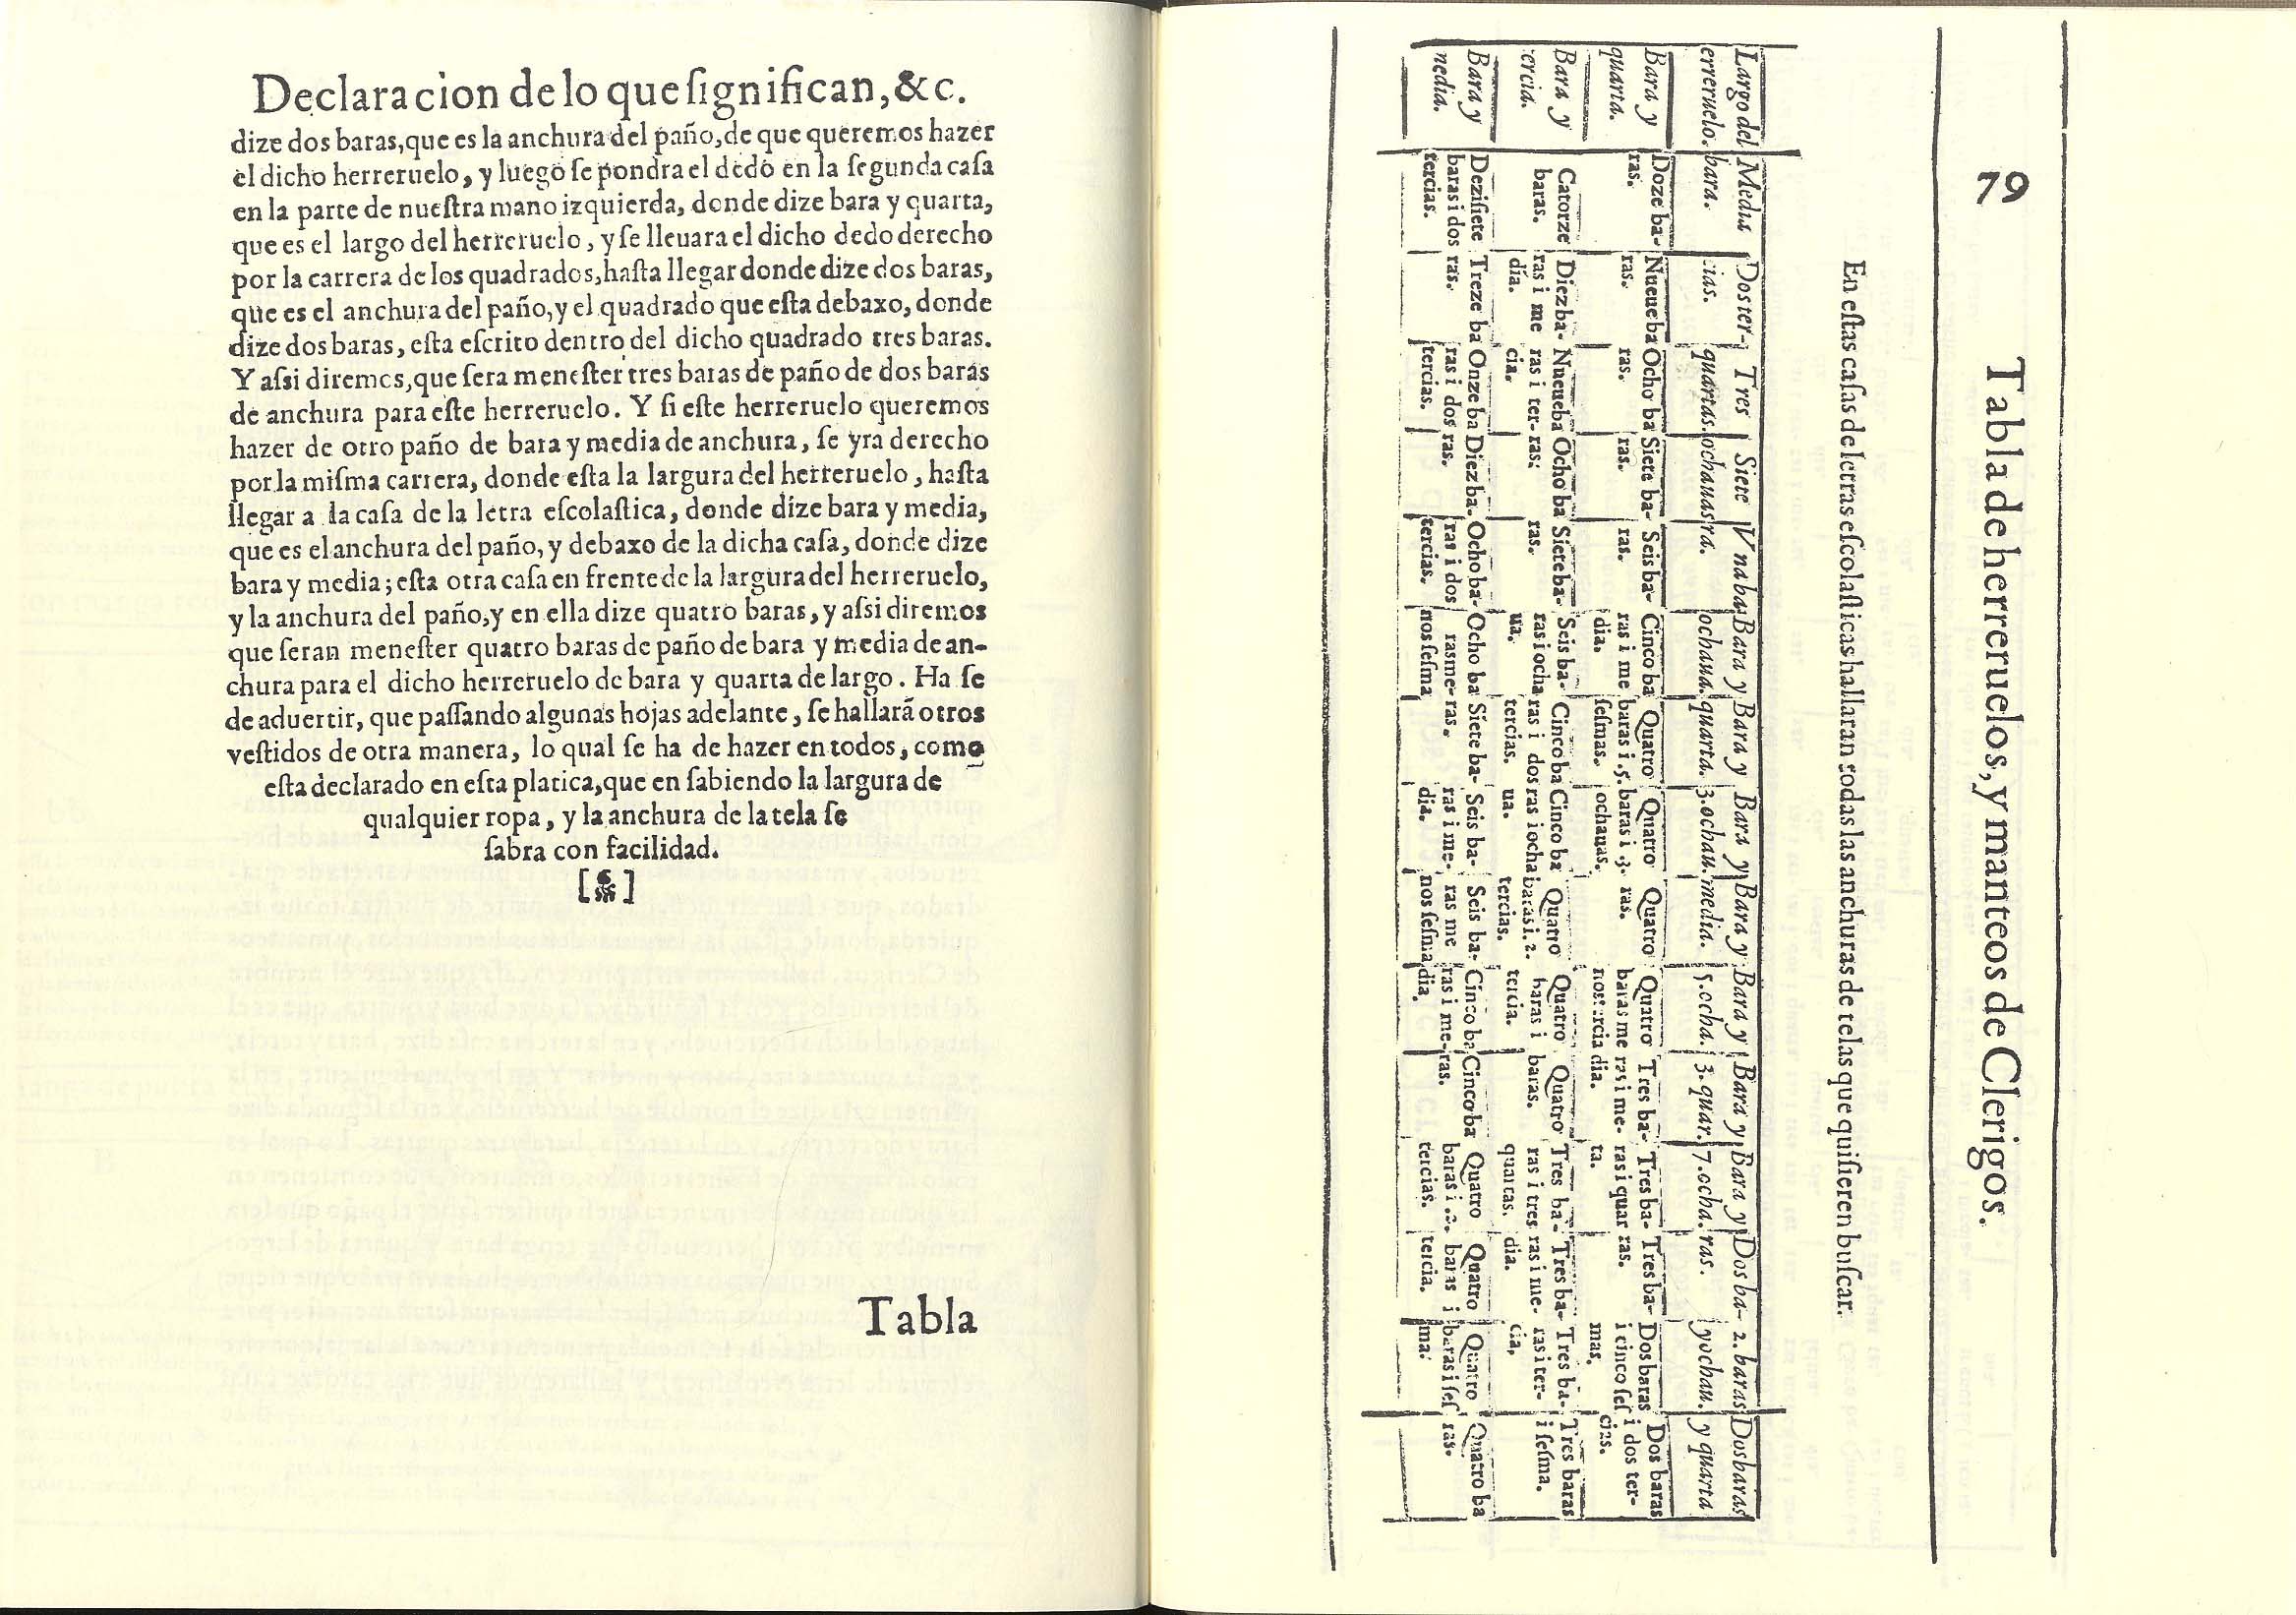 Declaracion de lo que ſignifican, &c.
dize dos baras, que es la anchura del paño, de que queremos hazer
el dicho herreruelo, y luego ſe pondra el dedo en la ſegunda caſa
en la parte de nueſtra mano izquierda, donde dize bara y quarta,
que es el largo del herreruelo, y ſe lleuara el dicho dedo derecho
por la carrera de los quadrados, haſta llegar donde dize dos baras,
que es el anchura del paño, y el quadrado que eſta debaxo, donde
dize dos baras, eſta eſcrito dentro del dicho quadrado tres baras.
Y aſsi diremos, que ſera meneſter tres baras de paño de dos baras
de anchura para eſte herreruelo. Y ſi eſte herreruelo queremos
hazer de otro paño de bara y media de anchura, ſe yra derecho
por la miſma carrera, donde eſta la largura del herreruelo, haſta
llegar a la caſa de la letra eſcolaſtica, donde dize bara y media,
que es el anchura del paño, y debaxo de la dicha caſa, donde dize
bara y media; eſta otra caſa en frente de la largura del herreruelo,
y la anchura del paño, y en ella dize quatro baras, y aſsi diremos
que ſeran meneſter quatro baras de paño de bara y media de an-
chura para el dicho herreruelo de bara y quarta de largo. Ha ſe
de aduertir, que paſſando algunas hojas adelante, ſe hallarã otros
veſtidos de otra manera, lo qual ſe ha de hazer en todos, como
eſta declarado en eſta platica, que en ſabiendo la largura de
qualquier ropa, y la anchura de la tela ſe
ſabra con facilidad.
Tabla
79
Tabla de herreruelos, y manteos de Clerigos.
En eſtas caſas de letras eſcolaſticas hallaran todas las anchuras de telas que quiſieren buſcar.
Largo del Media Doster- Tres Siete Vna ba Bara y Bara y Bara y Bara y Bara y Bara y Bara y Dos ba- 2. baras Dos baras
erreruelo. bara. cias. quartas. ochauas ra. ochaua. quarta. 3.ochau. media. 5.ocha. 3.quar. 7.ocha. ras. yochau. y quarta
Bara y Doze ba- Nueue ba Ocho ba Siete ba- Seis ba- Cinco ba Quatro Quatro Quatro Quatro Tres ba- Tres ba- Tres ba- Dos baras Dos baras
quarta. ras. ras. ras. ras. ras. ras i me baras i .5. baras i .3. ras. baras me ras i me- ras i quar ras. i cinco ſeſ i dos ter-
dia. ſeſmas. ochauas. nos tercia dia. ta. mas. cias.
Bara y Catorze Diez ba- Nueue ba Ocho ba Siete ba- Seis ba- Cinco ba Cinco ba Quatro Quatro Quatro Tres ba- Tres ba- Tres ba- Tres baras
ercia. baras. ras i me ras i ter- ras: ras. ras i ocha ras i dos ras i ocha baras i .2. baras i baras. ras i tres ras i me- ras i ter- i ſeſma.
dia. cia. ua. tercias. ua. tercias. tercia. quartas. dia. cia,
Bara y Deziſiete Treze ba Onze ba Diez ba. Ocho ba- Ocho ba Siete ba- Seis ba- Seis ba- Cinco ba Cinco ba Quatro Quatro Quatro Quatro ba
nedia. baras i dos ras. ras i dos ras. ras i dos ras me- ras. ras i me- ras me ras i me- ras. baras i .2. baras i baras i ſeſ ras.
tercias. tercias. tercias. nos ſeſma dia. nos ſeſma dia. tercias. tercia. ma.